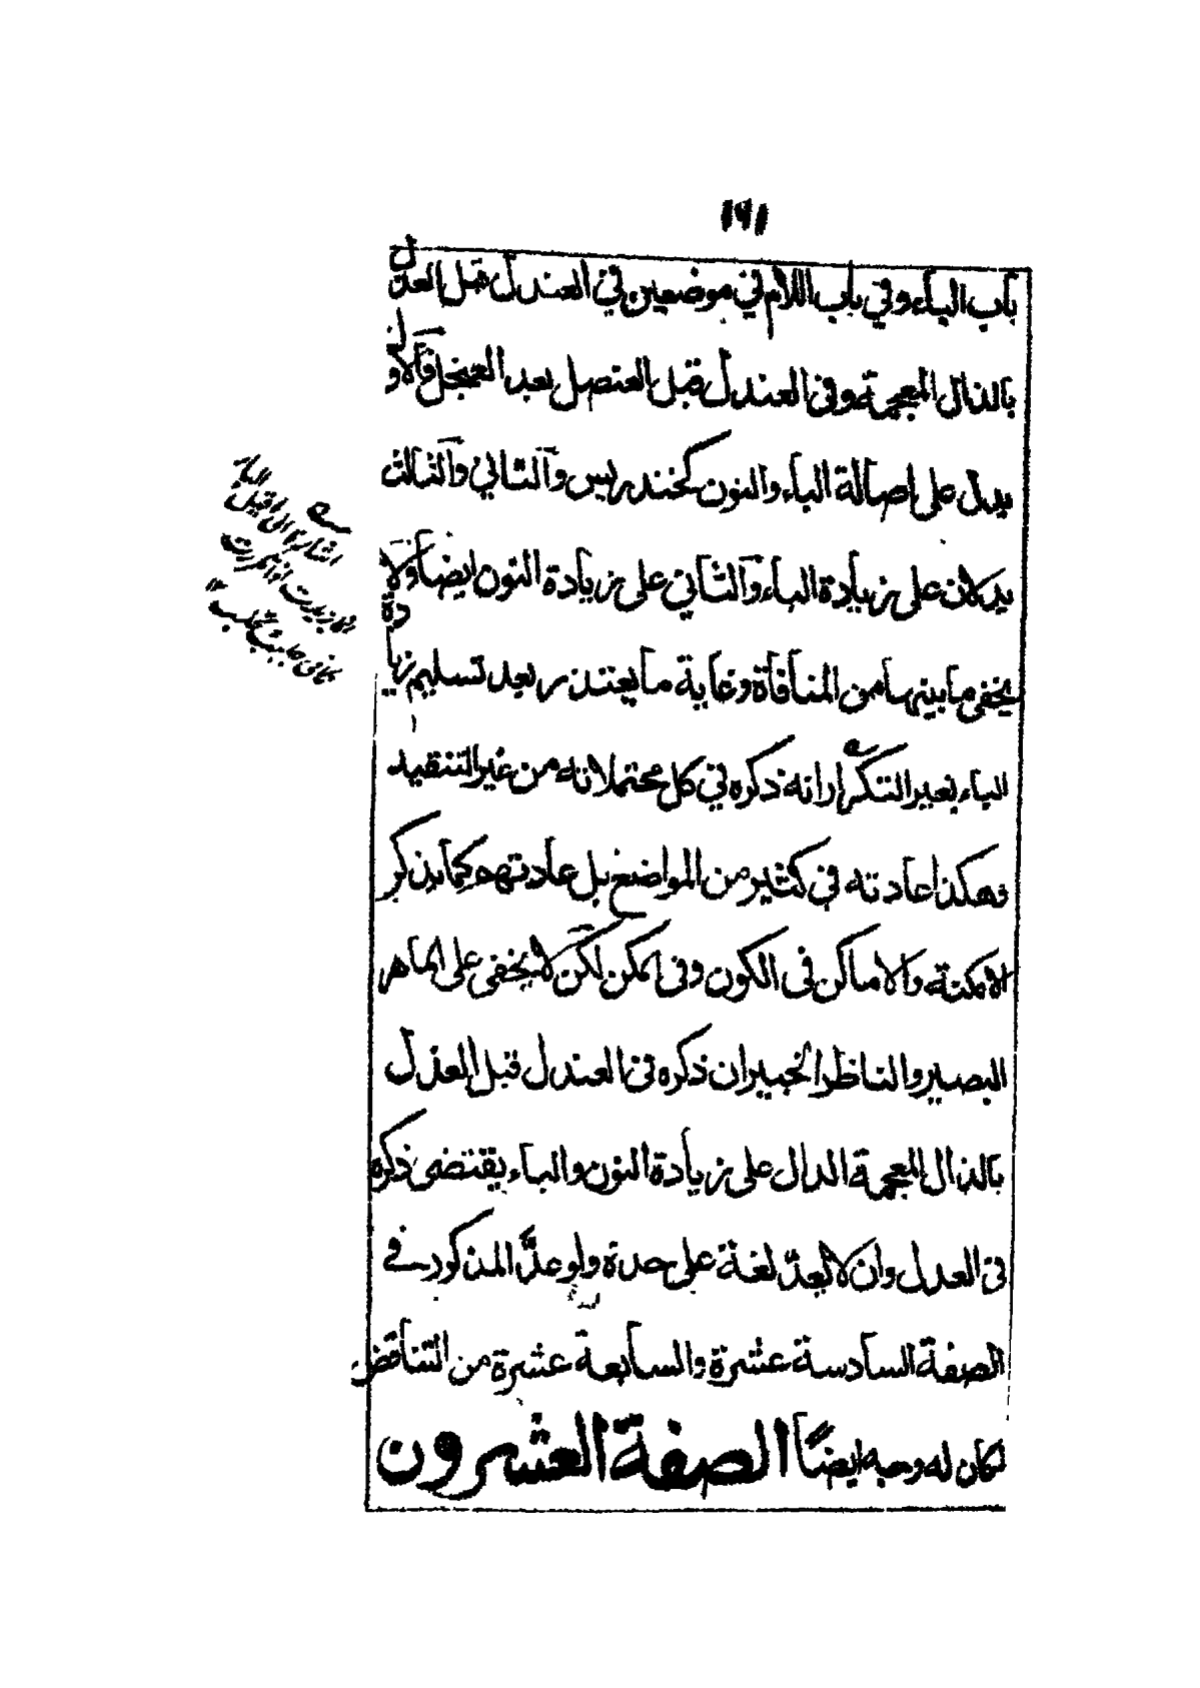 ١٩١
باب الباء وفي باب اللام في موضعين في العندل قبل العذل
بالذال المعجمة وفي العندل قبل العنصل بعد العنجل فالاول
يدل على اصالة الباء والنون كخندريس والثاني والثالث
يدلان على زيادة الباء والثاني على زيادة النون ايضا ولا
يخفى ما بينهما من المنافاة وغاية ما يعتذر بعد تسليم زيادة
الباء بغير التكرار انه ذكره في كل محتملاته من غير التنقيد
وهكذا عادته في كثير من المواضع بل عادتهم كما يذكر
الامكنة والاماكن في الكون وفي مكن لكن لا يخفى على الماهر
البصير والناظر الخبير ان ذكره في العندل قبل العذل
بالذال المعجمة الدال على زيادة النون والباء يقتضي ذكره
في العدل وان لا يعدّ لغة على حدة ولو عدّ المذكور في
الصفة السادسة عشرة والسابعة عشرة من التناقض
لكان له وجه ايضًا الصفة العشرون
اشارة الى ما قيل الباء
زيدت اذا تكررت
كما في جلبب